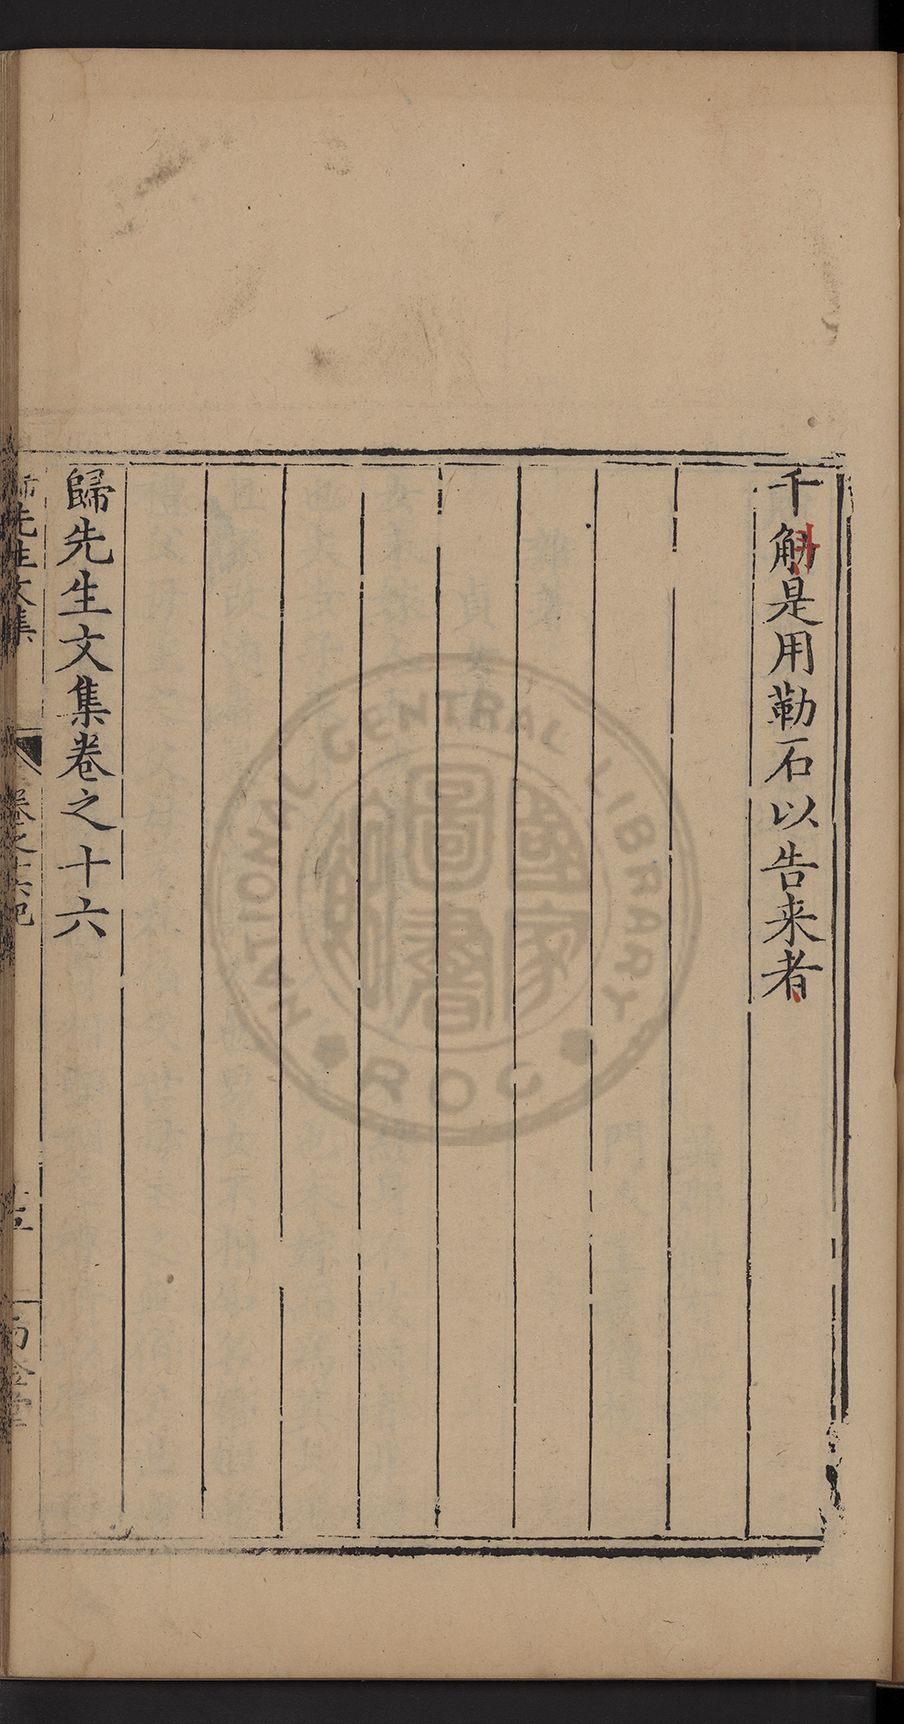 千斛是用勒石以告来者
歸先生文集卷之十六
先生文集
卷之十六
NATIONAL CENTRAL LIBRARY
R.O.C.
國家圖書館